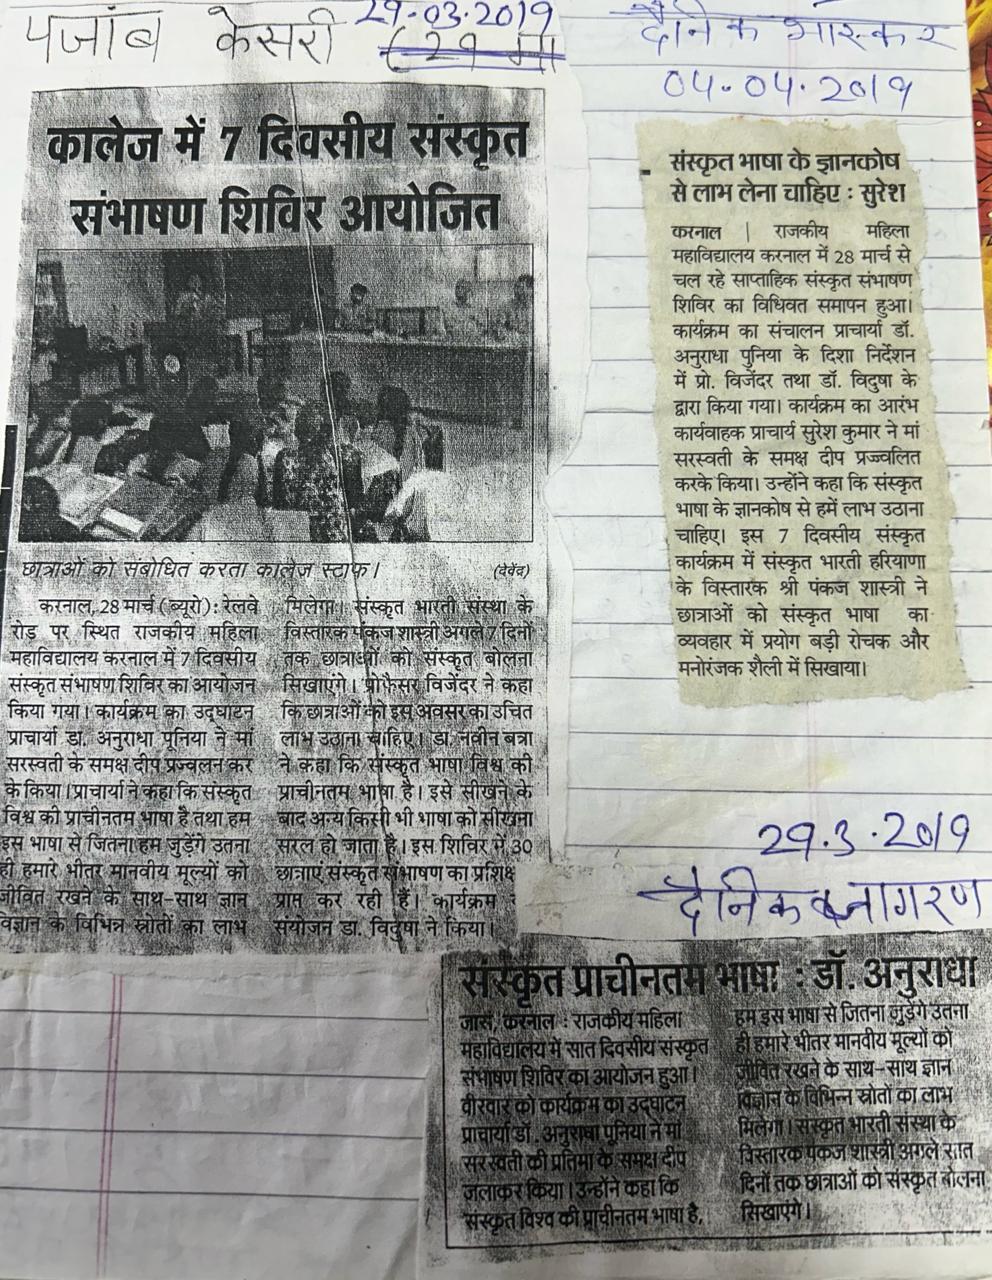 पजांब केसरी 29-03-2019
(29 मा
कालेज में 7 दिवसीय संस्कृत
संभाषण शिविर आयोजित
छात्राओं को संबोधित करता कालेज स्टाफ। (देवेंद्र)
करनाल, 28 मार्च (ब्यूरो): रेलवे
रोड़ पर स्थित राजकीय महिला
महाविद्यालय करनाल में 7 दिवसीय
संस्कृत संभाषण शिविर का आयोजन
किया गया। कार्यक्रम का उद्घाटन
प्राचार्या डा. अनुराधा पूनिया ने मां
सरस्वती के समक्ष दीप प्रज्वलन कर
के किया। प्राचार्या ने कहा कि संस्कृत
विश्व की प्राचीनतम भाषा है तथा हम
इस भाषा से जितना हम जुड़ेंगे उतना
ही हमारे भीतर मानवीय मूल्यों को
जीवित रखने के साथ-साथ ज्ञान
विज्ञान के विभिन्न स्रोतों का लाभ
मिलेगा। संस्कृत भारती संस्था के
विस्तारक पंकज शास्त्री अगले 7 दिनों
तक छात्राओं को संस्कृत बोलना
सिखाएंगे। प्रोफैसर विजेंदर ने कहा
कि छात्राओं को इस अवसर का उचित
लाभ उठाना चाहिए। डा. नवीन बत्रा
ने कहा कि संस्कृत भाषा विश्व की
प्राचीनतम भाषा है। इसे सीखने के
बाद अन्य किसी भी भाषा को सीखना
सरल हो जाता है। इस शिविर में 30
छात्राएं संस्कृत संभाषण का प्रशिक्ष
प्राप्त कर रही हैं। कार्यक्रम
संयोजन डा. विदुषा ने किया।
दैनिक भास्कर
04-04-2019
संस्कृत भाषा के ज्ञानकोष
से लाभ लेना चाहिए : सुरेश
करनाल | राजकीय महिला
महाविद्यालय करनाल में 28 मार्च से
चल रहे साप्ताहिक संस्कृत संभाषण
शिविर का विधिवत समापन हुआ।
कार्यक्रम का संचालन प्राचार्या डॉ.
अनुराधा पुनिया के दिशा निर्देशन
में प्रो. विजेंदर तथा डॉ. विदुषा के
द्वारा किया गया। कार्यक्रम का आरंभ
कार्यवाहक प्राचार्य सुरेश कुमार ने मां
सरस्वती के समक्ष दीप प्रज्ज्वलित
करके किया। उन्होंने कहा कि संस्कृत
भाषा के ज्ञानकोष से हमें लाभ उठाना
चाहिए। इस 7 दिवसीय संस्कृत
कार्यक्रम में संस्कृत भारती हरियाणा
के विस्तारक श्री पंकज शास्त्री ने
छात्राओं को संस्कृत भाषा का
व्यवहार में प्रयोग बड़ी रोचक और
मनोरंजक शैली में सिखाया।
29.3.2019
दैनिक जागरण
संस्कृत प्राचीनतम भाषा : डॉ. अनुराधा
जासं, करनाल : राजकीय महिला
महाविद्यालय में सात दिवसीय संस्कृत
संभाषण शिविर का आयोजन हुआ।
वीरवार को कार्यक्रम का उद्घाटन
प्राचार्या डॉ. अनुराधा पूनिया ने मां
सरस्वती की प्रतिमा के समक्ष दीप
जलाकर किया। उन्होंने कहा कि
संस्कृत विश्व की प्राचीनतम भाषा है,
हम इस भाषा से जितना जुड़ेंगे उतना
ही हमारे भीतर मानवीय मूल्यों को
जीवित रखने के साथ-साथ ज्ञान
विज्ञान के विभिन्न स्रोतों का लाभ
मिलेगा। संस्कृत भारती संस्था के
विस्तारक पंकज शास्त्री अगले सात
दिनों तक छात्राओं को संस्कृत बोलना
सिखाएंगे।